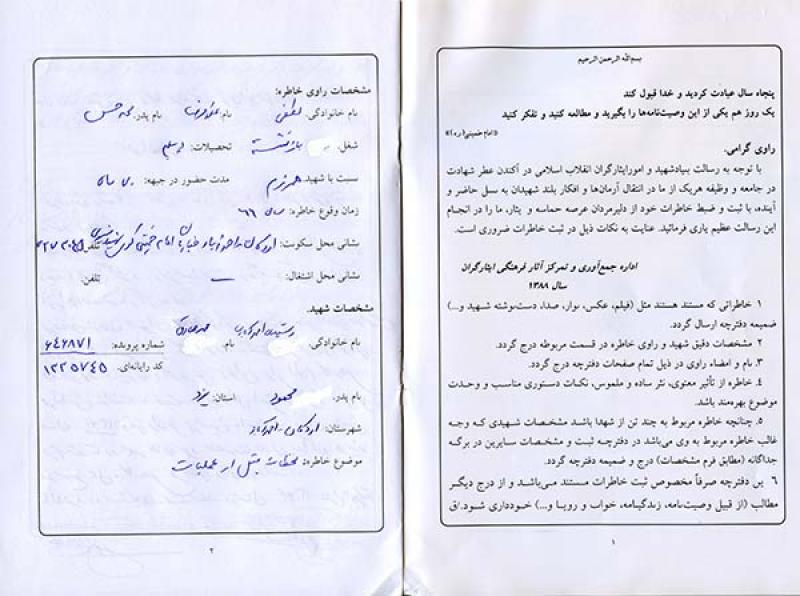 بسم‌الله الرحمن الرحیم
پنجاه سال عبادت کردید و خدا قبول کند
یک روز هم یکی از این وصیت‌نامه‌ها را بگیرید و مطالعه کنید و تفکر کنید
«امام خمینی(ره)»
راوی گرامی.
با توجه به رسالت بنیادشهید و امورایثارگران انقلاب اسلامی در آکندن عطر شهادت
در جامعه و وظیفه هریک از ما در انتقال آرمان‌ها و افکار بلند شهیدان به نسل حاضر و
آینده، با ثبت و ضبط خاطرات خود از دلیرمردان عرصه حماسه و یثار، ما را در انجام
این رسالت عظیم یاری فرمائید. عنایت به نکات ذیل در ثبت خاطرات ضروری است.
اداره جمع‌آوری و تمرکز آثار فرهنگی ایثارگران
سال ۱۳۸۸
۱ خاطراتی که مستند هستند مثل (فیلم، عکس، نوار، صدا، دست‌نوشته شهید و...)
ضمیمه دفترچه ارسال گردد.
۲ مشخصات دقیق شهید و راوی خاطره در قسمت مربوطه درج گردد.
۳ نام و امضاء راوی در ذیل تمام صفحات دفترچه درج گردد.
۴ خاطره از تأثیر معنوی، نثر ساده و ملموس، نکات دستوری مناسب و وحدت
موضوع بهره‌مند باشد.
۵ چنانچه خاطره مربوط به چند تن از شهدا باشد مشخصات شهیدی که وجه
غالب خاطره مربوط به وی می‌باشد در دفترچه ثبت و مشخصات سایرین در برگه
جداگانه (مطابق فرم مشخصات) درج و ضمیمه دفترچه گردد.
۶ این دفترچه صرفاً مخصوص ثبت خاطرات مستند می‌باشد و از درج دیگر
مطالب (از قبیل وصیت‌نامه، زندگینامه، خواب و رویا و...) خودداری شود./ق
۱
مشخصات راوی خاطره:
نام خانوادگی: لطفی نام: نام پدر: محمد حسن
شغل: بازنشسته تحصیلات:
نسبت با شهید: همرزم مدت حضور در جبهه: ماه
زمان وقوع خاطره: سال ۶۶
نشانی محل سکونت: اردکان احمدآباد خیابان امام خمینی کوی شهید تلفن:
نشانی محل اشتغال: — تلفن:
مشخصات شهید:
نام خانوادگی: نام: شماره پرونده: ۶۴۶۸۷۱
کد رایانه‌ای: ۱۲۲۵۷۴۵
نام پدر: محمود استان: یزد
شهرستان: اردکان - احمدآباد
موضوع خاطره: لحظات قبل از عملیات
۲